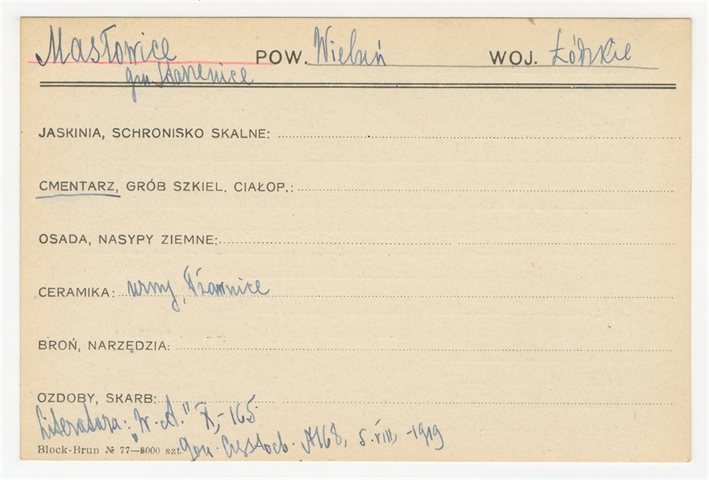 Masłowice POW. Wieluń WOJ. Łódzkie
gm. Starzenice
JASKINIA, SCHRONISKO SKALNE:
CMENTARZ, GRÓB SZKIEL. CIAŁOP.:
OSADA, NASYPY ZIEMNE:
CERAMIKA: urny,
BROŃ, NARZĘDZIA:
OZDOBY, SKARB:
Literatura: "W. A." X, -165
Block-Brun № 77—8000 szt. Gon. Częstoch. № 168, 5. VIII, -1919